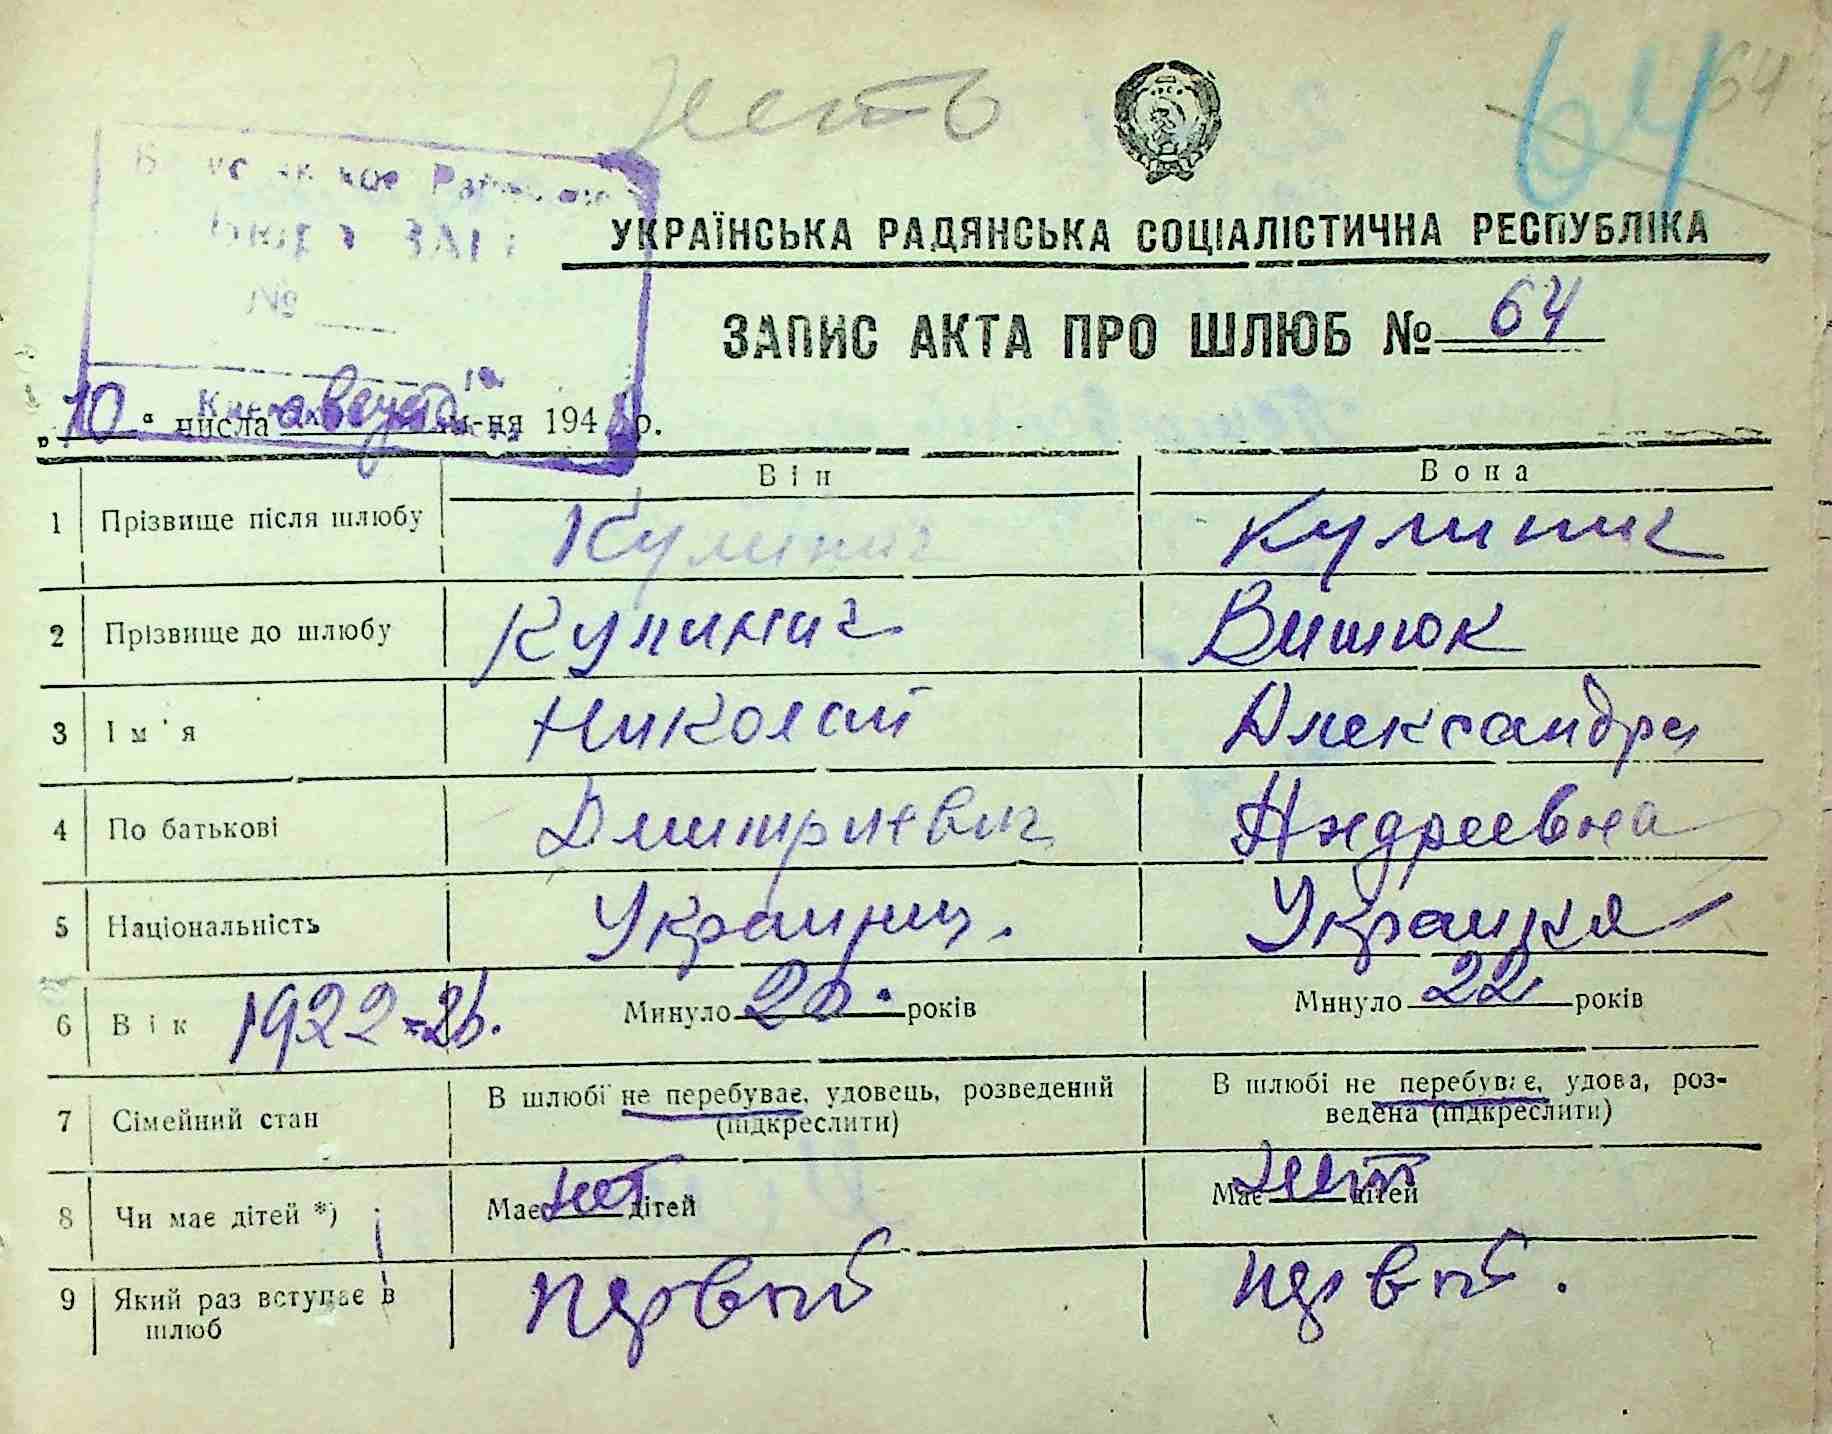 нет
64
64
Отдел ЗАГС
№
УКРАЇНСЬКА РАДЯНСЬКА СОЦІАЛІСТИЧНА РЕСПУБЛІКА
ЗАПИС АКТА ПРО ШЛЮБ № 64
„10“ числа августа м-ця 194 р.
Він Вона
1 Прізвище після шлюбу Кулинич Кулинич
2 Прізвище до шлюбу Кулинич Вишнюк
3 Ім'я Николай Александра
4 По батькові Дмитриевич Андреевна
5 Національність Украинец. Украинка
6 Вік 1922-26. Минуло 26. років Минуло 22 років
7 Сімейний стан В шлюбі не перебуває, удовець, розведений (підкреслити) В шлюбі не перебуває, удова, роз-
ведена (підкреслити)
8 Чи має дітей *) Має нет дітей Має нет дітей
9 Який раз вступає в первый первый.
шлюб